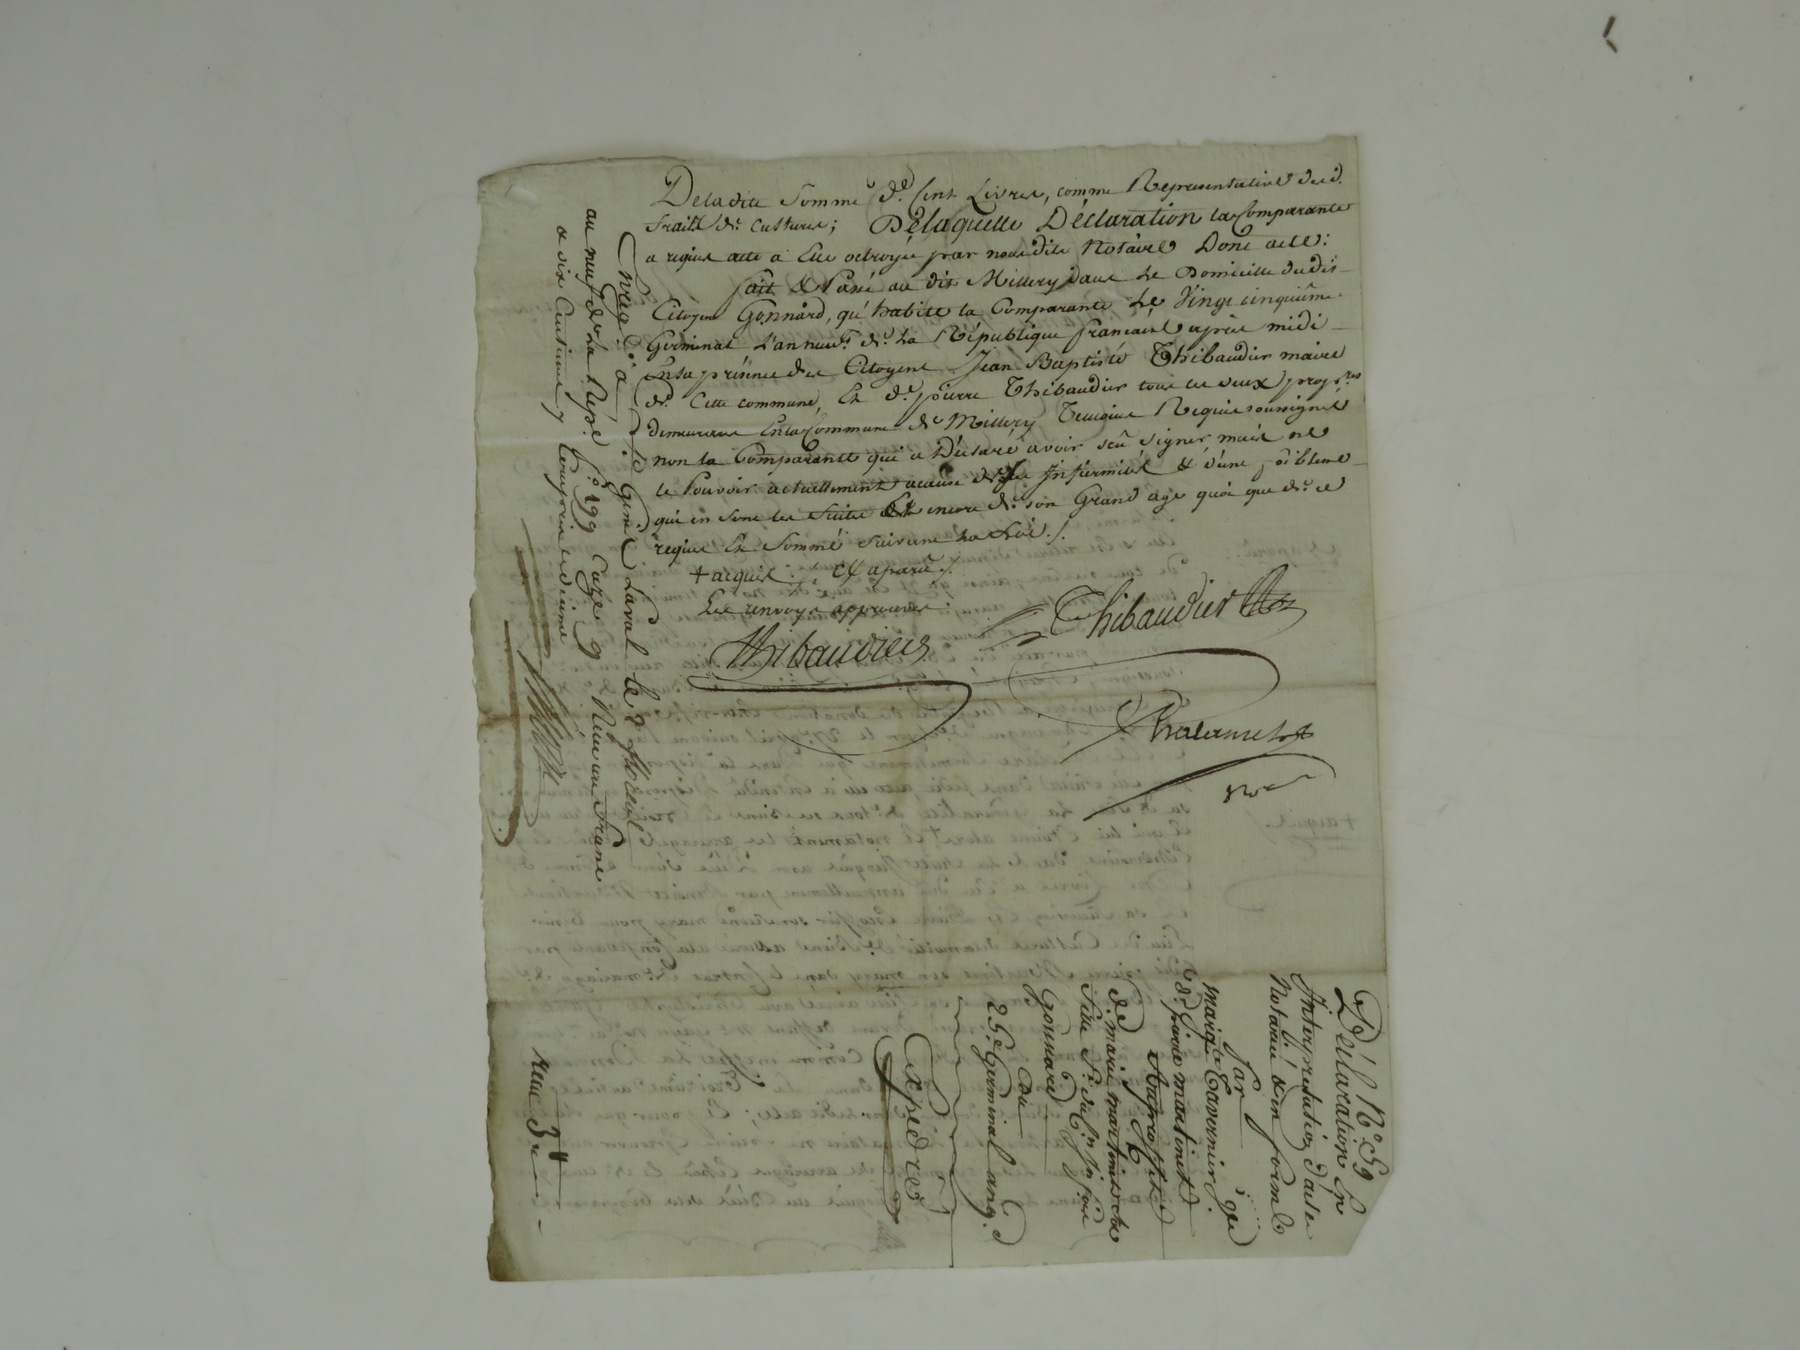 De ladite Somme de Cent Livres, comme Representative desd.
fraits de Cultures; De laquelle Déclaration la Comparante
a requis acte a Elle octroyé par nous dit Notaire Dont acte:
fait & Passé au dit Millery dans le Domicille du dit
Citoyen Gonnard, qu'habite la Comparante Le Vingt cinquième
Germinal L'an neuf de La République francaise après midi
En la présence des Citoyens Jean Baptiste Thibaudier maire
de Cette commune, Et de pierre Thibaudier tous les deux prop.res
demeurans En la Commune de Millery Temoins Requis soussignés
non la Comparante qui a Déclaré avoir sçu signer mais ne
le Pouvoir actuellement acause de ses Infirmités & d'une foiblesse
qui en sont les suites Et encore de son Grand age quoi que de ce
requis Et Sommé suivant La Loi ./.
+ acquis ./. & aparu ./.
Les renvoys approuvés
Thibaudier
Thibaudier
Thalamet
No.re
Enreg.é à St. Genis Laval le 8 floréal
an neuf de la Rép.e f.o 199 Case 9 Reçu un franc
& dix Centimes y compris le dixième
Dél. N.o 59
Déclaration En
Interprétation d'acte
Notarié & en forme
Par
Marg.te Tavernier v.ve
de pierre martinet
Au proffit
de marie martinet
Gonnard
Du
25.e Germinal an 9.
Expédiés
Reçu 3